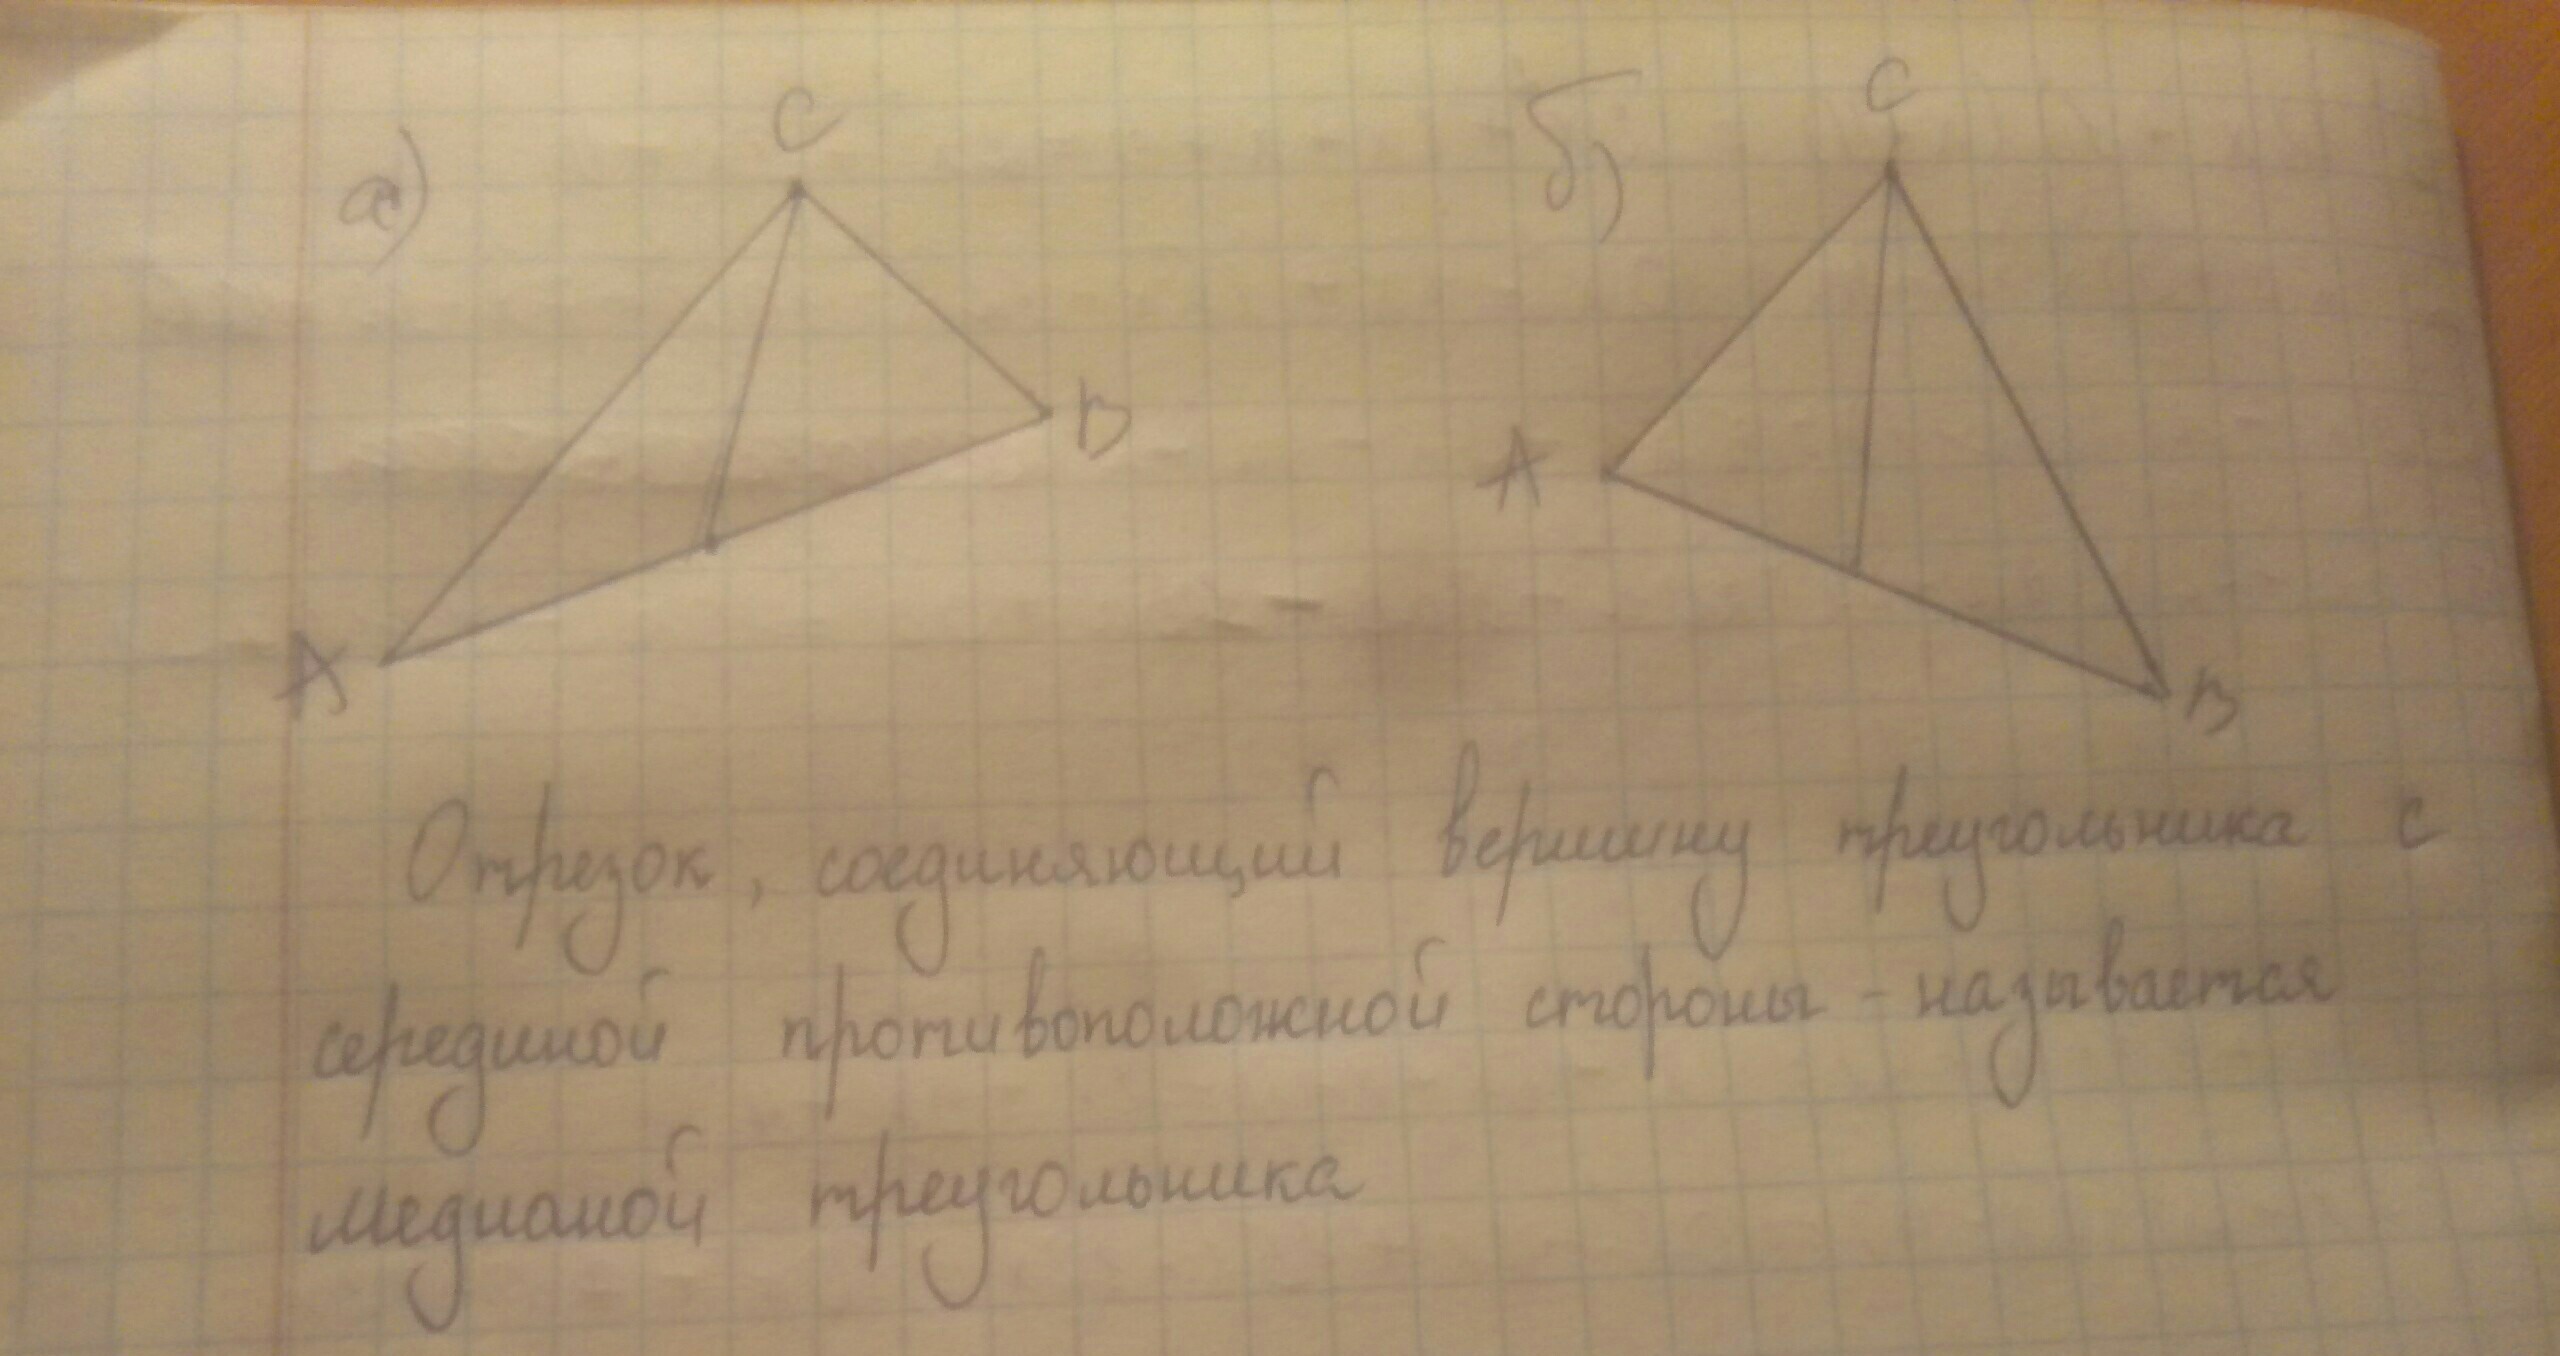 а) C б) C
B
A
A B
Отрезок, соединяющий вершину треугольника с
серединой противоположной стороны - называется
медианой треугольника